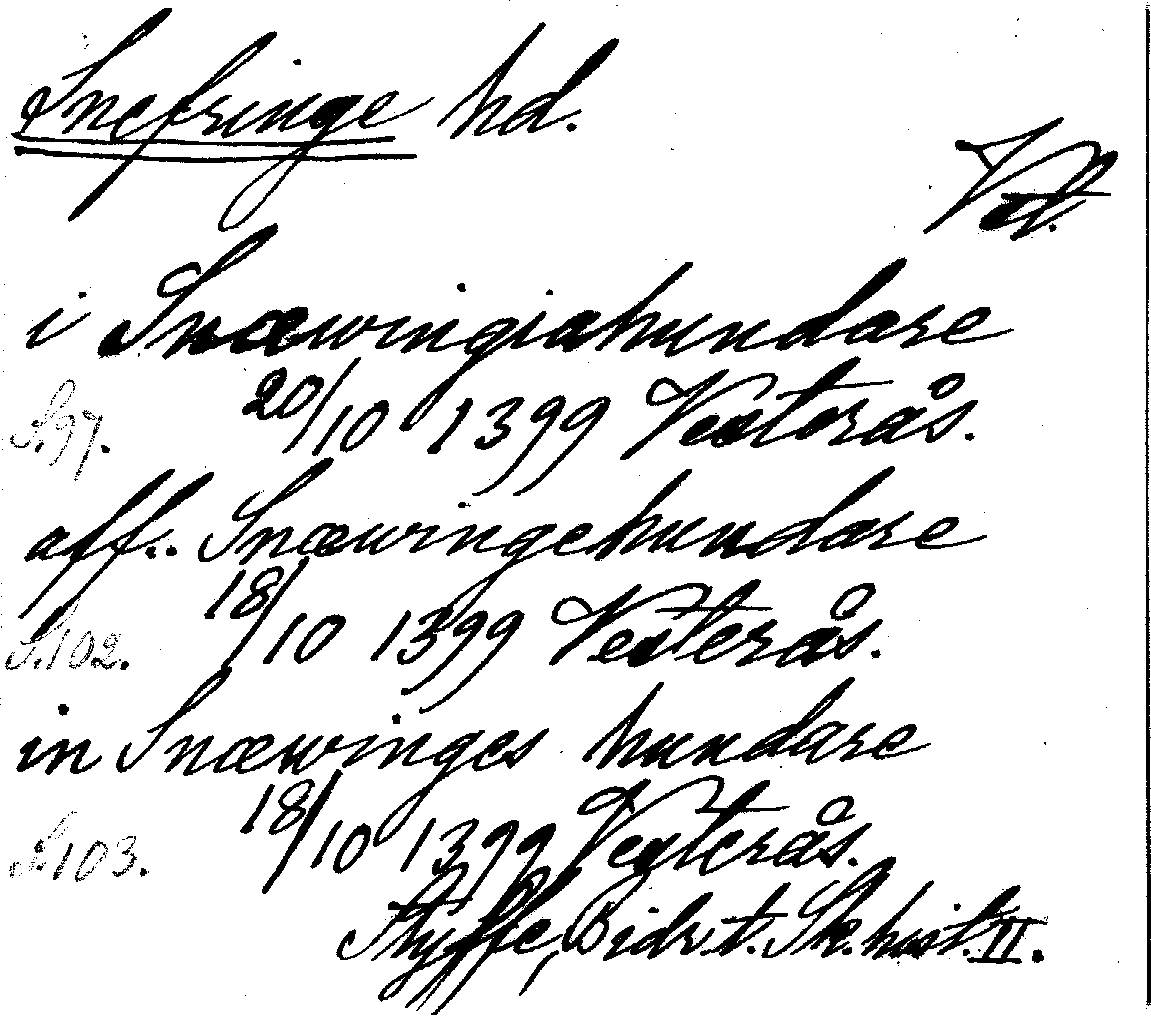 Snefringe hd.
Vstl.
i Snæwingiahundare
S.97. 20/10 1399 Vesterås.
aff.. Snæwingehundare
S.102. 18/10 1399 Vesterås.
in Snæwinges hundare
S.103. 18/10 1399 Vesterås.
Styffe, Bidr. t. Sk. hist. II.